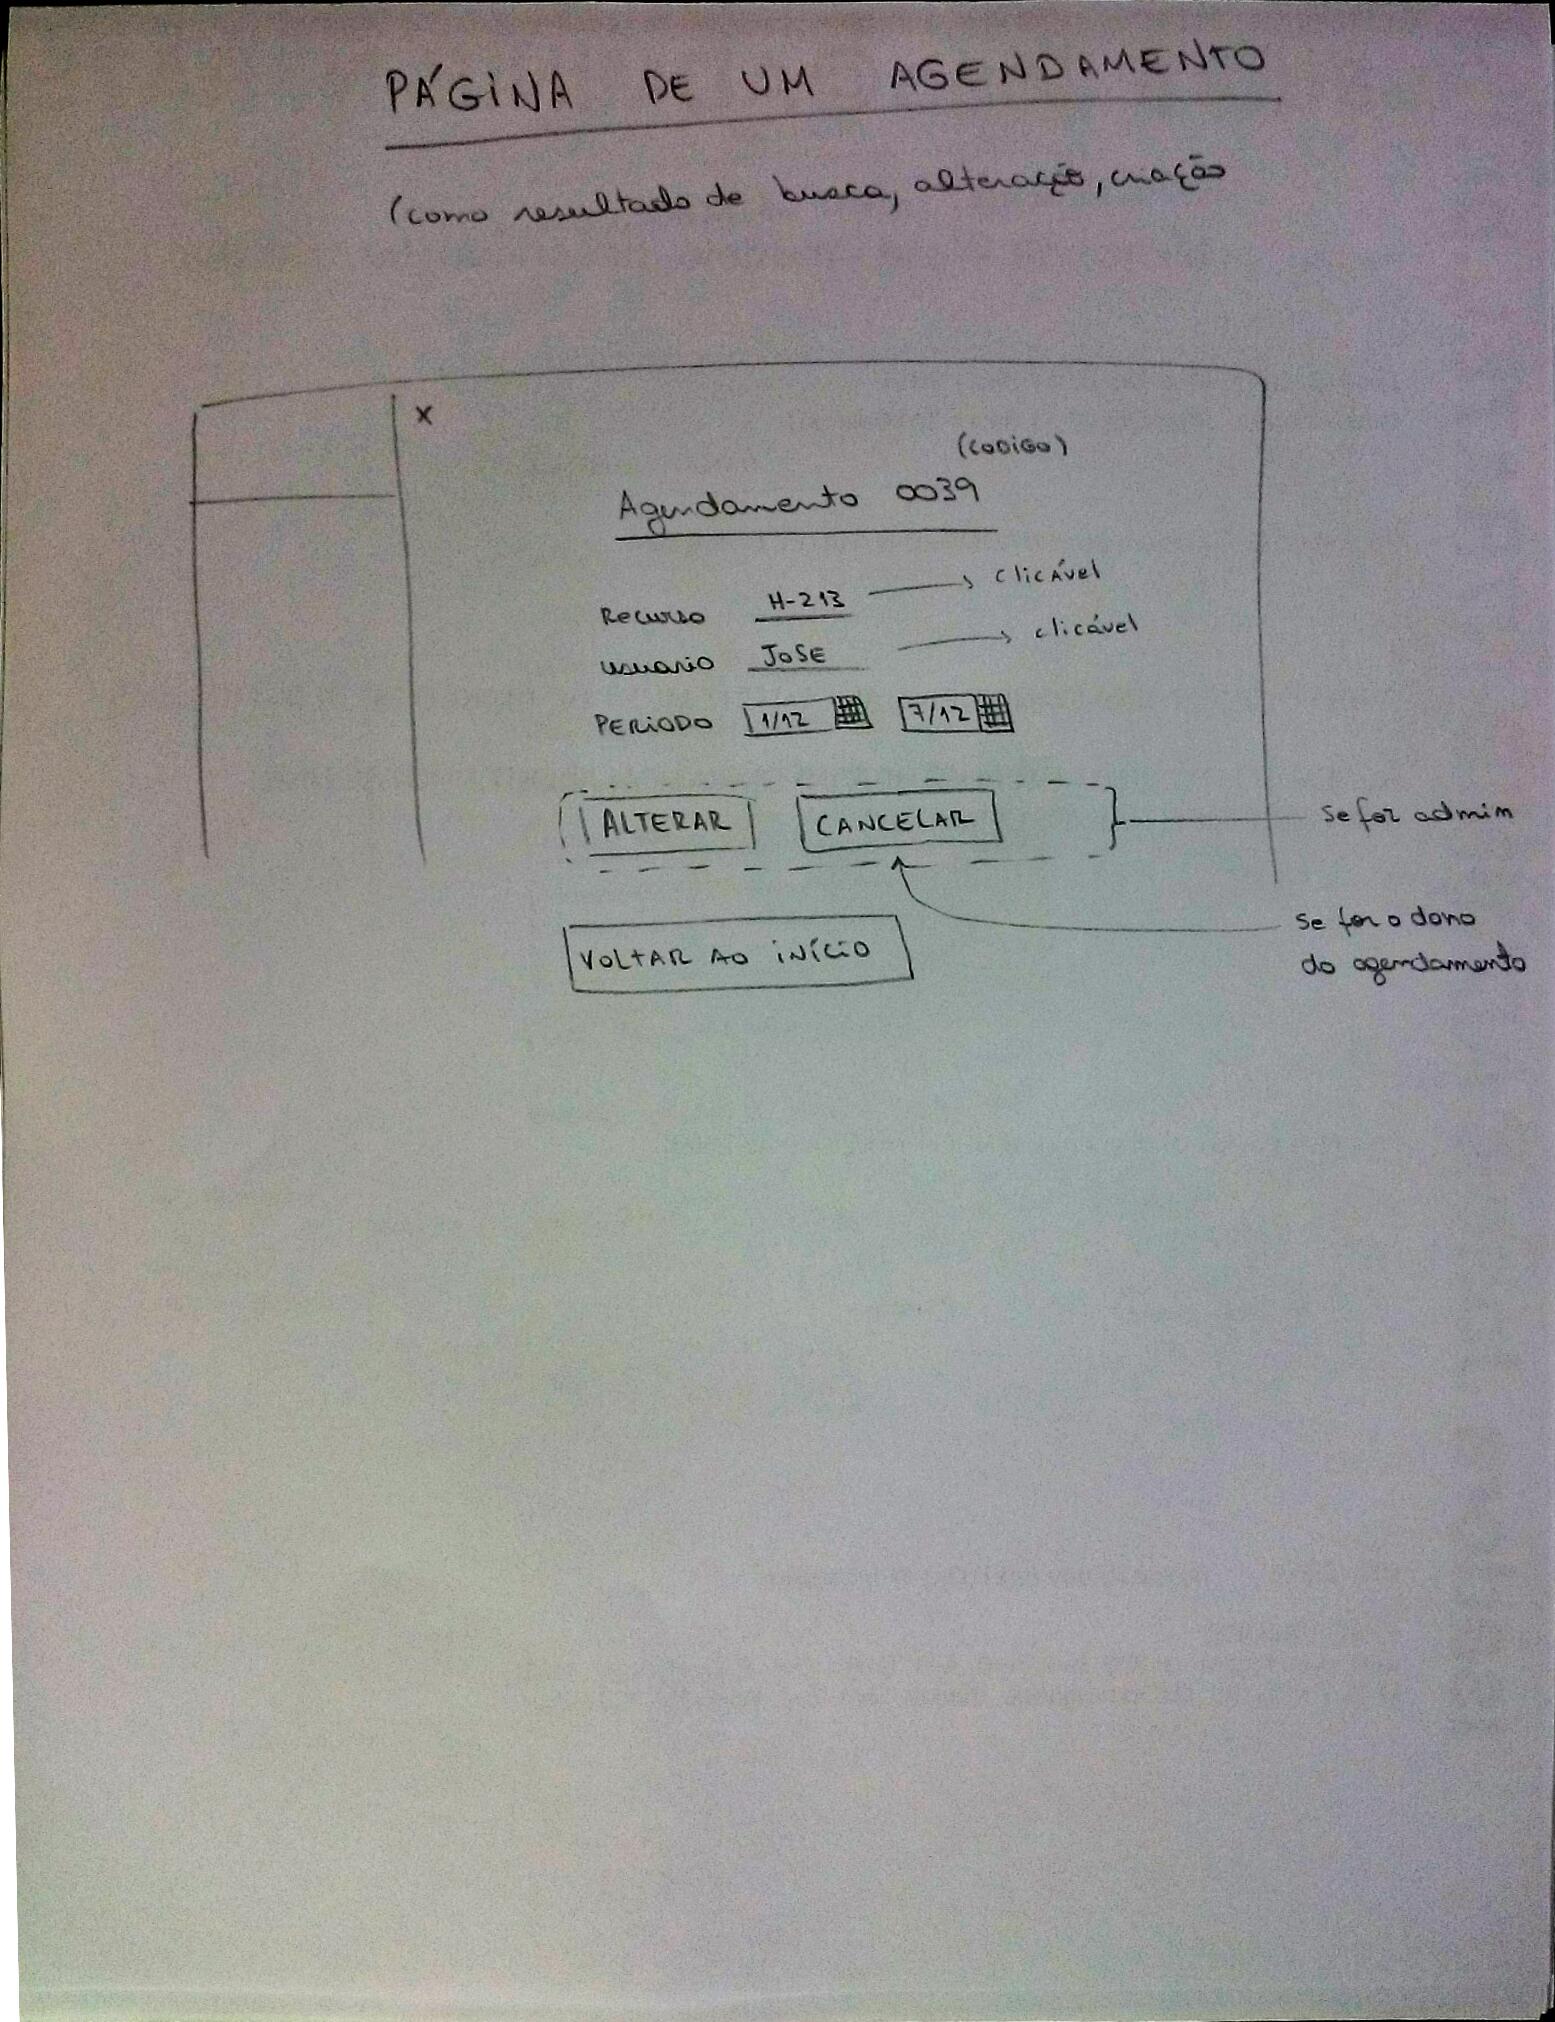 PÁGINA DE UM AGENDAMENTO
(como resultado de busca, alteração, criação
X
(CODIGO)
Agendamento 0039
Recurso H-213 clicÁvel
usuario JOSE clicável
PERIODO 1/12 7/12
ALTERAR CANCELAR se for admin
se for o dono
VOLTAR AO INÍCIO do agendamento